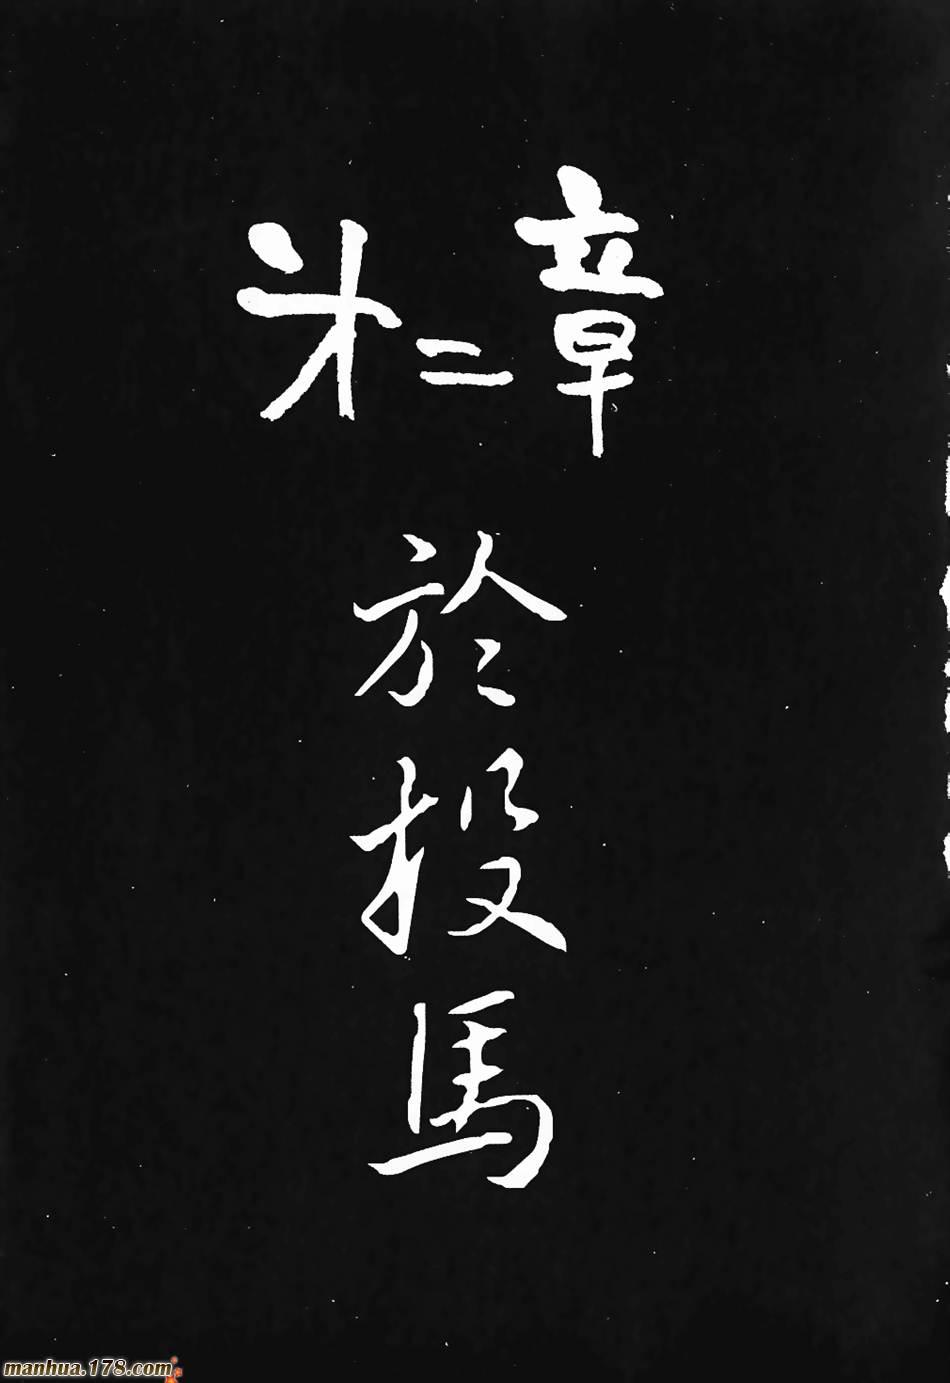 才二章
於投馬
manhua.178.com